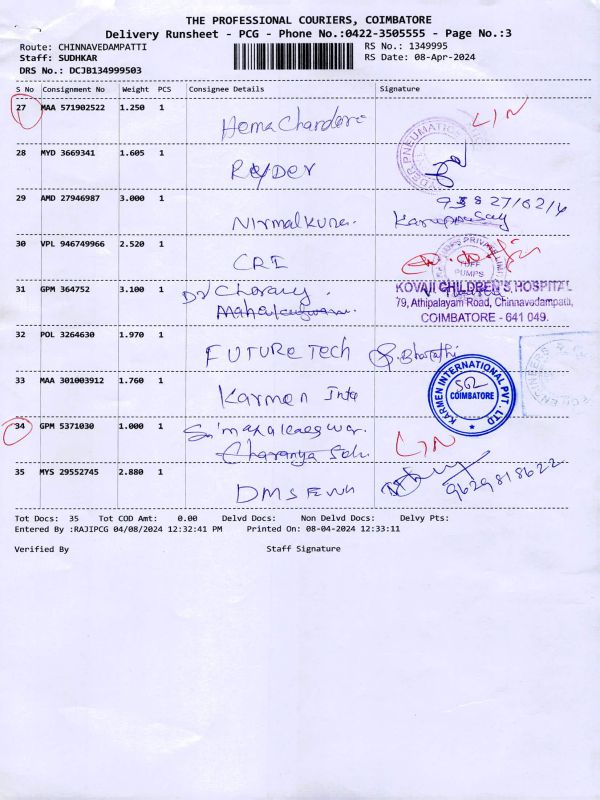 THE PROFESSIONAL COURIERS, COIMBATORE
Delivery Runsheet - PCG - Phone No.:0422-3505555 - Page No.:3
Route: CHINNAVEDAMPATTI RS No.: 1349995
Staff: SUDHKAR RS Date: 08-Apr-2024
DRS No.: DCJB134999503
S No Consignment No Weight PCS Consignee Details Signature
27 MAA 571902522 1.250 1
Hema LIN
28 MYD 3669341 1.605 1
29 AMD 27946987 3.000 1
30 VPL 946749966 2.520 1
CRI PUMPS
31 GPM 364752 3.100 1
Dr KOVAJI CHILDREN'S HOSPITAL
79, Athipalayam Road, Chinnavedampatti,
COIMBATORE - 641 049.
32 POL 3264630 1.970 1
FUTURE TECH S. Bharathi
33 MAA 301003912 1.760 1
Karmen Inte KARMEN INTERNATIONAL PVT. LTD COIMBATORE
34 GPM 5371030 1.000 1
LIN
35 MYS 29552745 2.880 1
DMS 9629818622
Tot Docs: 35 Tot COD Amt: 0.00 Delvd Docs: Non Delvd Docs: Delvy Pts:
Entered By :RAJIPCG 04/08/2024 12:32:41 PM Printed On: 08-04-2024 12:33:11
Verified By Staff Signature